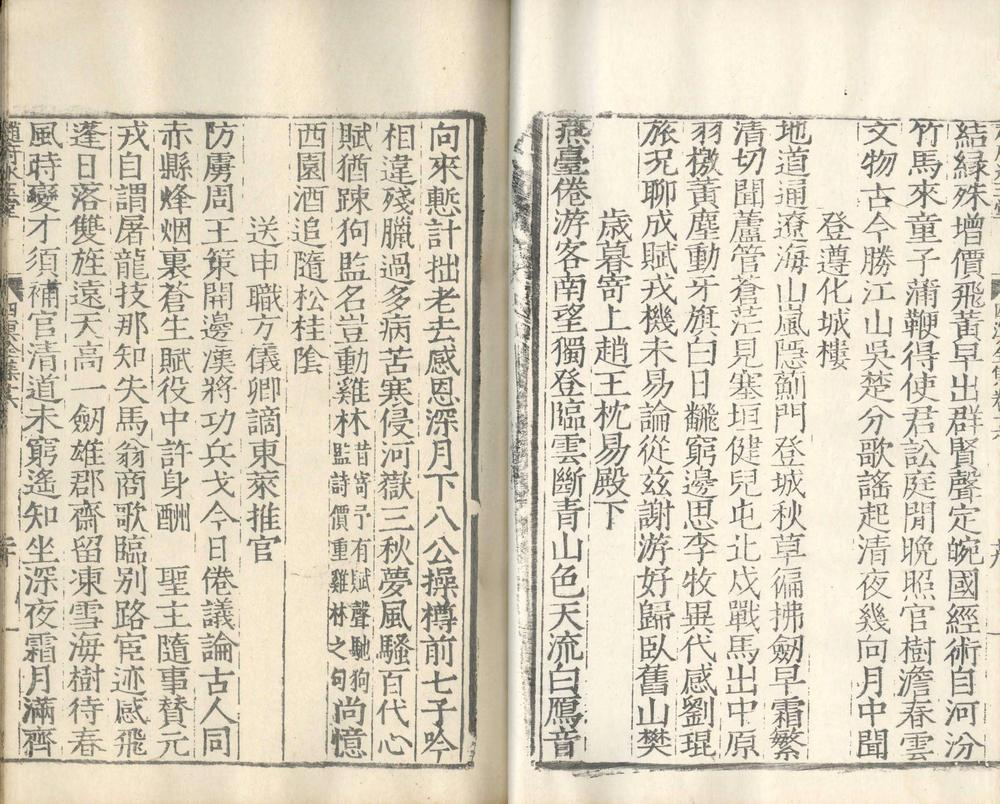 結緣殊增價飛黃早出群賢聲定皖國經術自河汾
竹馬來童子蒲鞭得使君訟庭閒晚照官樹澹春雲
文物古今勝江山吳楚分歌謠起清夜幾向月中聞
登遵化城樓
地道通遼海山嵐隱薊門登城秋草偏拂劒早霜繁
清切聞蘆管蒼茫見塞垣健兒屯北戍戰馬出中原
羽檄黃塵動牙旗白日飜窮邊思李牧異代感劉琨
旅況聊成賦戎機未易論從玆謝游好歸臥舊山樊
歲暮寄上趙王枕易殿下
燕臺倦游客南望獨登臨雲斷青山色天流白鴈音
向來慙計拙老去感恩深月下八公操樽前七子吟
相違殘臘過多病苦寒侵河嶽三秋夢風騷百代心
賦猶踈狗監名豈動雞林昔寄予有賦聲馳狗監詩價重雞林之句尚憶
西園酒追隨松桂陰
送申職方儀卿謫東萊推官
防虜周王策開邊漢將功兵戈今日倦議論古人同
赤縣烽烟裏蒼生賦役中許身酬 聖主隨事賛元
戎自謂屠龍技那知失馬翁商歌臨別路宦迹感飛
蓬日落雙旌遠天高一劒雄郡齋留凍雪海樹待春
風時變才須補官清道未窮遙知坐深夜霜月滿齊